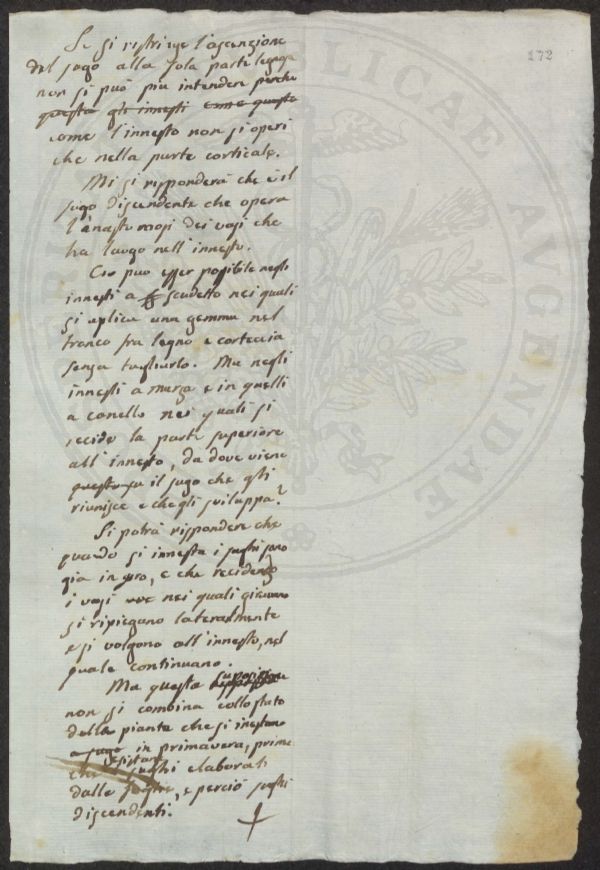 172
Se si ristringe l'ascenzione
del sugo alla sola parte legnosa
non si può piu intendere perche
questa gli innesti come questa
come l'innesto non si operi
che nella parte corticale.
Mi si risponderà che è il
sugo discendente che opera
l'anastomosi dei vasi che
ha luogo nell'innesto.
Cio può esser possibile negli
innesti a scudetto nei quali
si aplica una gemma nel
tronco fra legno e corteccia
senza tagliarlo. Ma negli
innesti a marza e in quelli
a canello nei quali si
recide la parte superiore
all'innesto, da dove viene
questo su il sugo che gli
riunisce e che gli sviluppa?
Si potrà rispondere che
quando si innesta i sughi sono
gia in giro, e che recidendo
i vasi nei quali giravano
si ripiegano lateralmente
e si volgono all'innesto, nel
quale continuano.
Ma questa suposizione
non si combina collo stato
delle piante che si inestano
a sugo in primavera, prima
che esistano sughi elaborati
dalle foglie, e perciò sughi
discendenti.